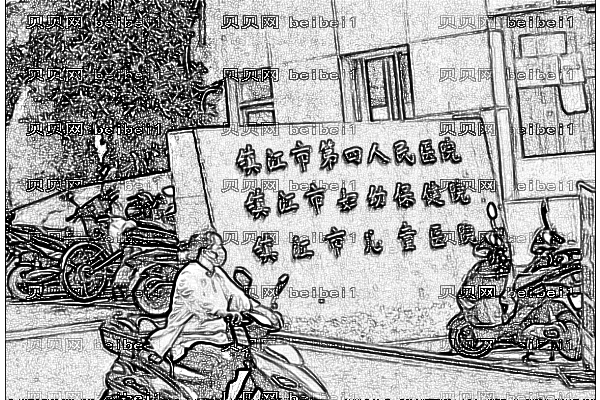 贝贝网 beibei1 贝贝网 beibei1 贝贝网 beibei1
贝贝网 beibei1 贝贝网 beibei1 贝贝网 beibei1
贝贝网 beibei1 贝贝网 beibei1 贝贝网 beibei1
镇江市第四人民医院
贝贝网 beibei1 贝贝网 beibei1 贝贝网 beibei1
镇江市妇幼保健院
镇江市儿童医院
贝贝网 beibei1 贝贝网 beibei1 贝贝网 beibei1
贝贝网 beibei1 贝贝网 beibei1 贝贝网 beibei1
贝贝网 beibei1 贝贝网 beibei1 贝贝网 beibei1